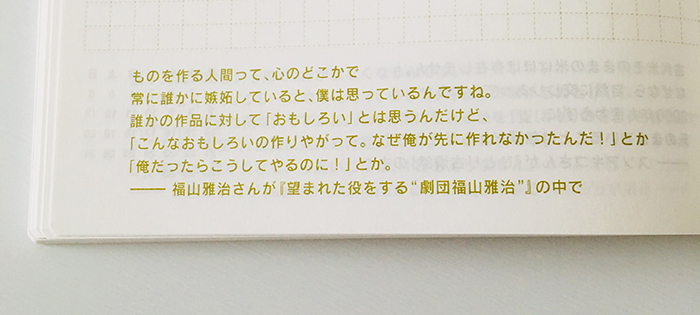 ものを作る人間って、心のどこかで
常に誰かに嫉妬していると、僕は思っているんですね。
誰かの作品に対して「おもしろい」とは思うんだけど、
「こんなおもしろいの作りやがって。なぜ俺が先に作れなかったんだ！」とか
「俺だったらこうしてやるのに！」とか。
―― 福山雅治さんが『望まれた役をする“劇団福山雅治”』の中で